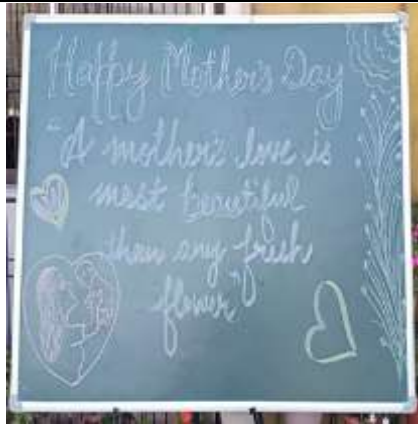 Happy Mother's Day
"A mother's love is
most beautiful
than any fresh
flower"